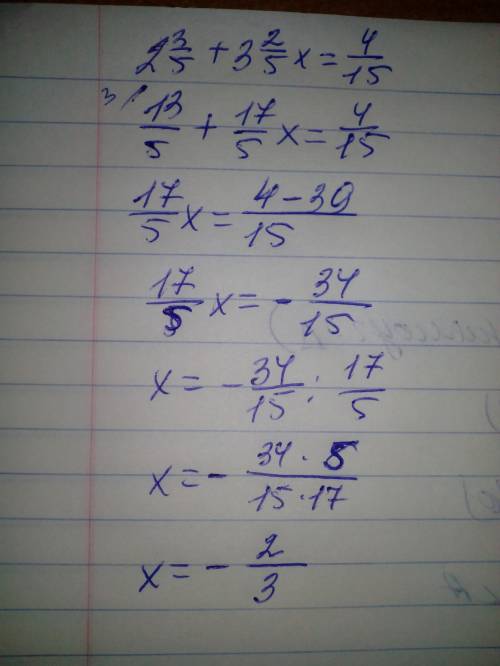 2 3/5 + 3 2/5 x = 4/15
3/ 13/5 + 17/5 x = 4/15
17/5 x = 4-39/15
17/5 x = - 34/15
x = - 34/15 : 17/5
x = - 34 · 5/15 · 17
x = - 2/3